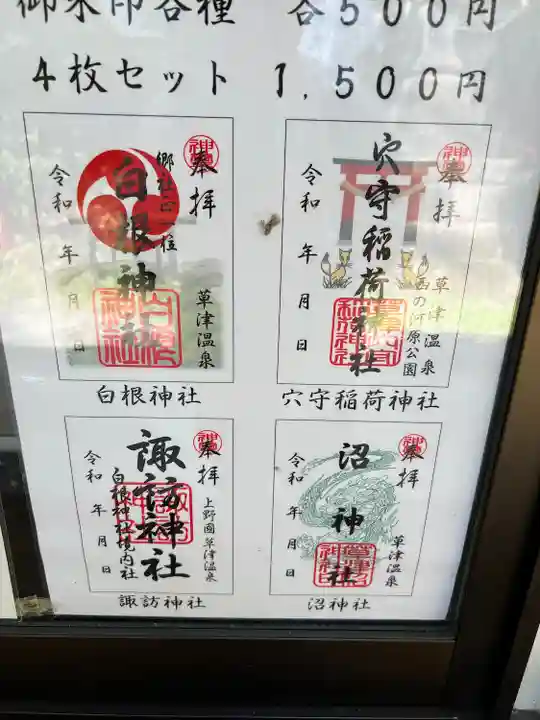 御朱印各種 各500円
4枚セット 1,500円
奉拝
郷社正一位
白根神社
草津温泉
令和 年 月 日
白根神社
奉拝
穴守稲荷神社
草津温泉
西の河原公園
令和 年 月 日
穴守稲荷神社
奉拝
諏訪神社
上野國草津温泉
白根神社境内社
令和 年 月 日
諏訪神社
奉拝
沼神社
草津温泉
令和 年 月 日
沼神社